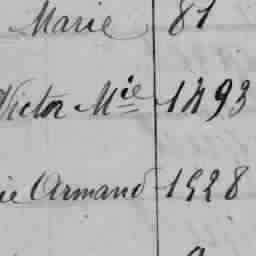 Marie 81
Victor Mie 1493
ie Armand 1528